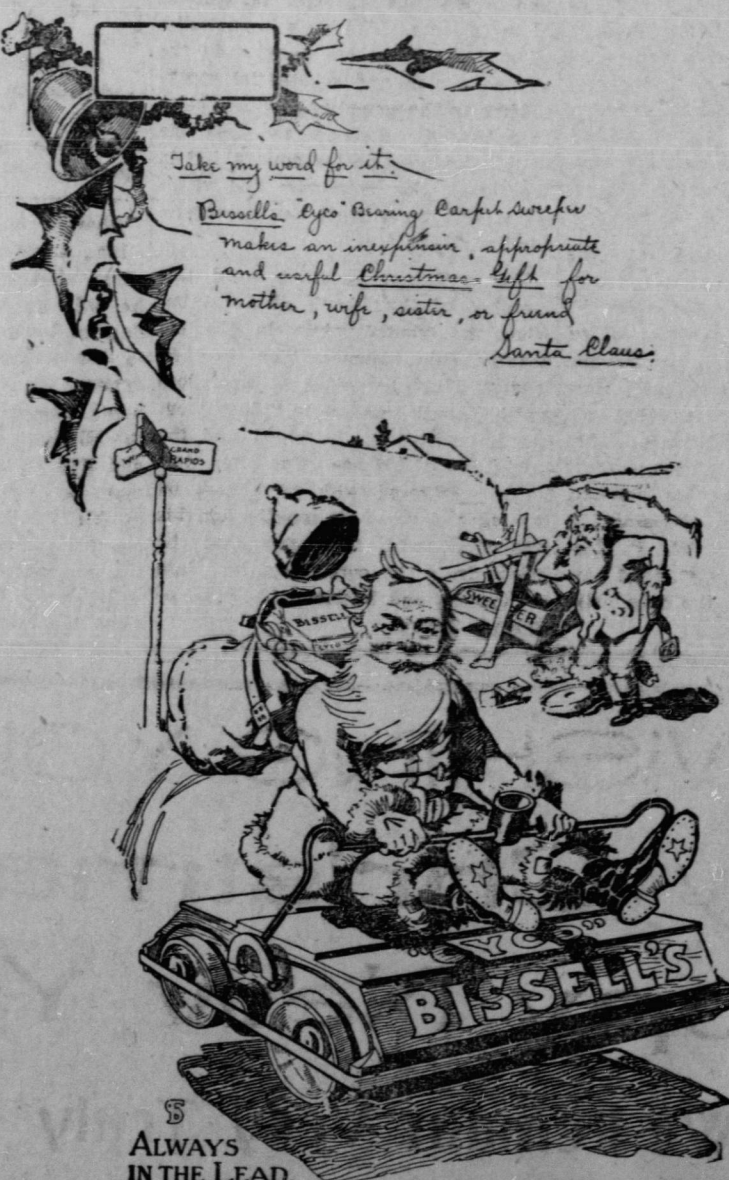 Take my word for it.
Bissell's "Cyco" Bearing Carpet Sweeper
makes an inexpensive, appropriate
and useful Christmas Gift for
mother, wife, sister, or friend
Santa Claus.
GRAND
RAPIDS
BISSELL
SWEEPER
"CYCO"
BISSELL'S
ALWAYS
IN THE LEAD